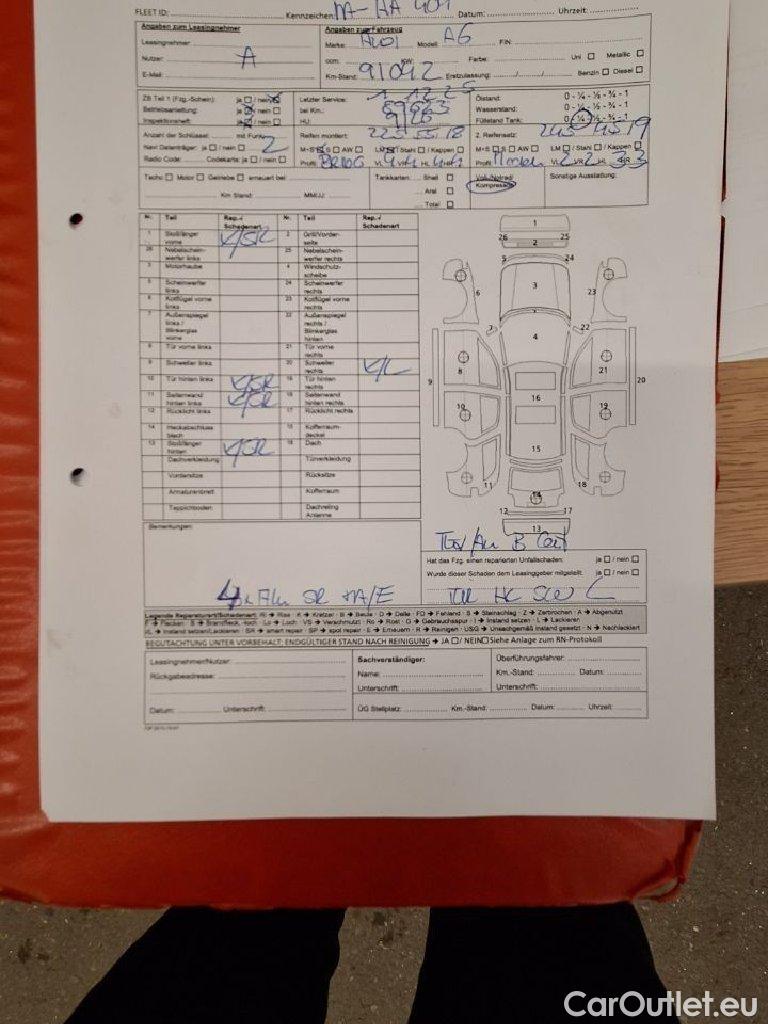 FLEET ID: Kennzeichen: Datum: Uhrzeit:
Angaben zum Leasingnehmer
Angaben zum Fahrzeug
Leasingnehmer:
Marke: AUDI Modell: A6 FIN:
Nutzer: A
ccm: KW: Farbe: Uni Metallic
E-Mail:
Km-Stand: 91042 Erstzulassung: Benzin Diesel
ZB Teil 1 (Fzg.-Schein): ja / nein
Letzter Service:
Ölstand: 0 - ¼ - ½ - ¾ - 1
Betriebsanleitung: ja / nein
bei Km.:
Wasserstand: 0 - ¼ - ½ - ¾ - 1
Inspektionsheft: ja / nein
HU:
Füllstand Tank: 0 - ¼ - ½ - ¾ - 1
Anzahl der Schlüssel: mit Funk: 2
Reifen montiert: 225 55 18
2. Reifensatz: 245 45 19
Navi Datenträger: ja / nein
M+S S AW LM / Stahl / Kappen
M+S S AW LM / Stahl / Kappen
Radio Code: Codekarte: ja / nein
Profil: VL VR HL HR
Profil: VL 2 VR 2 HL 3 HR 3
Tacho Motor Getriebe erneuert bei
Tankkarten: Shell
Voll-/Notrad/
Sonstige Ausstattung:
Km Stand: MM/JJ:
Aral
Kompressor
Total
Nr. Teil Rep.-/ Schadenart Nr. Teil Rep.-/ Schadenart
1 Stoßfänger vorne K/SR 2 Grill/Vorder-seite
26 Nebelschein-werfer links 25 Nebelschein-werfer rechts
3 Motorhaube 4 Windschutz-scheibe
5 Scheinwerfer links 24 Scheinwerfer rechts
6 Kotflügel vorne links 23 Kotflügel vorne rechts
7 Außenspiegel links / Blinkerglas vorne 22 Außenspiegel rechts / Blinkerglas hinten
8 Tür vorne links 21 Tür vorne rechts
9 Schweller links 20 Schweller rechts K/L
10 Tür hinten links K/SR 19 Tür hinten rechts
11 Seitenwand hinten links K/SR 18 Seitenwand hinten rechts
12 Rücklicht links 17 Rücklicht rechts
14 Heckabschluss blech 15 Kofferraum-deckel
13 Stoßfänger hinten K/SR 16 Dach
Dachverkleidung Türverkleidung
Vordersitze Rücksitze
Armaturenbrett Kofferraum
Teppichboden Dachreling Antenne
1
26 2 25
5 24
6 3 23
7 4 22
9 8 21 20
10 16 19
15
11 14 18
12 17
13
Bemerkungen:
Hat das Fzg. einen reparierten Unfallschaden: ja / nein
Wurde dieser Schaden dem Leasinggeber mitgeteilt: ja / nein
4x Alu SR
Legende Reparaturart/Schadenart: R → Riss - K → Kratzer - B → Beule - D → Delle - FD → Fehlend - S → Steinschlag - Z → Zerbrochen - A → Abgenutzt
F → Flecken - B → Brandfleck, -loch - Lo → Loch - VS → Verschmutzt - Ro → Rost - G → Gebrauchsspur - I → Instand setzen - L → Lackieren
I/L → Instand setzen/Lackieren - SR → smart repair - SP → spot repair - E → Erneuern - R → Reinigen - USG → Unsachgemäß instand gesetzt - N → Nachlackiert
BEGUTACHTUNG UNTER VORBEHALT: ENDGÜLTIGER STAND NACH REINIGUNG → JA / NEIN Siehe Anlage zum RN-Protokoll
Leasingnehmer/Nutzer:
Sachverständiger:
Überführungsfahrer:
Rückgabeadresse:
Name:
Km.-Stand: Datum:
Unterschrift:
Unterschrift:
Datum: Unterschrift:
ÜG Stellplatz: Km.-Stand: Datum: Uhrzeit:
CarOutlet.eu